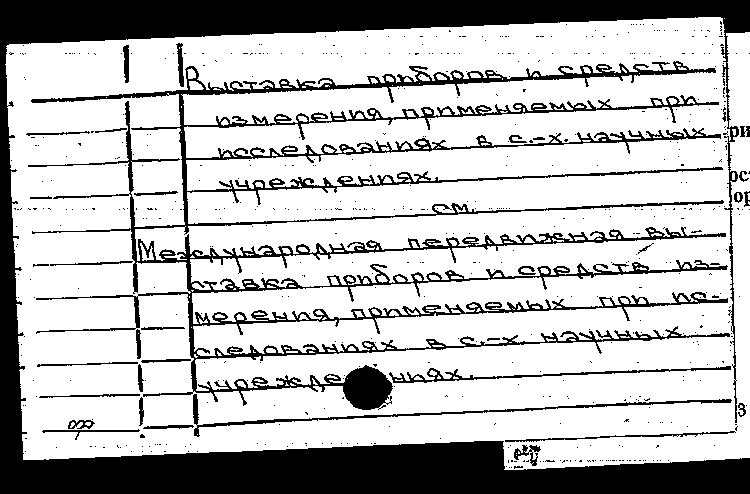 Выставка приборов и средств
измерения, применяемых при
исследованиях в с.-х. научных
учреждениях.
см.
Международная передвижная вы-
ставка приборов и средств из-
мерения, применяемых при ис-
следованиях в с.-х. научных
учреждениях.
ри
ос
ор
з